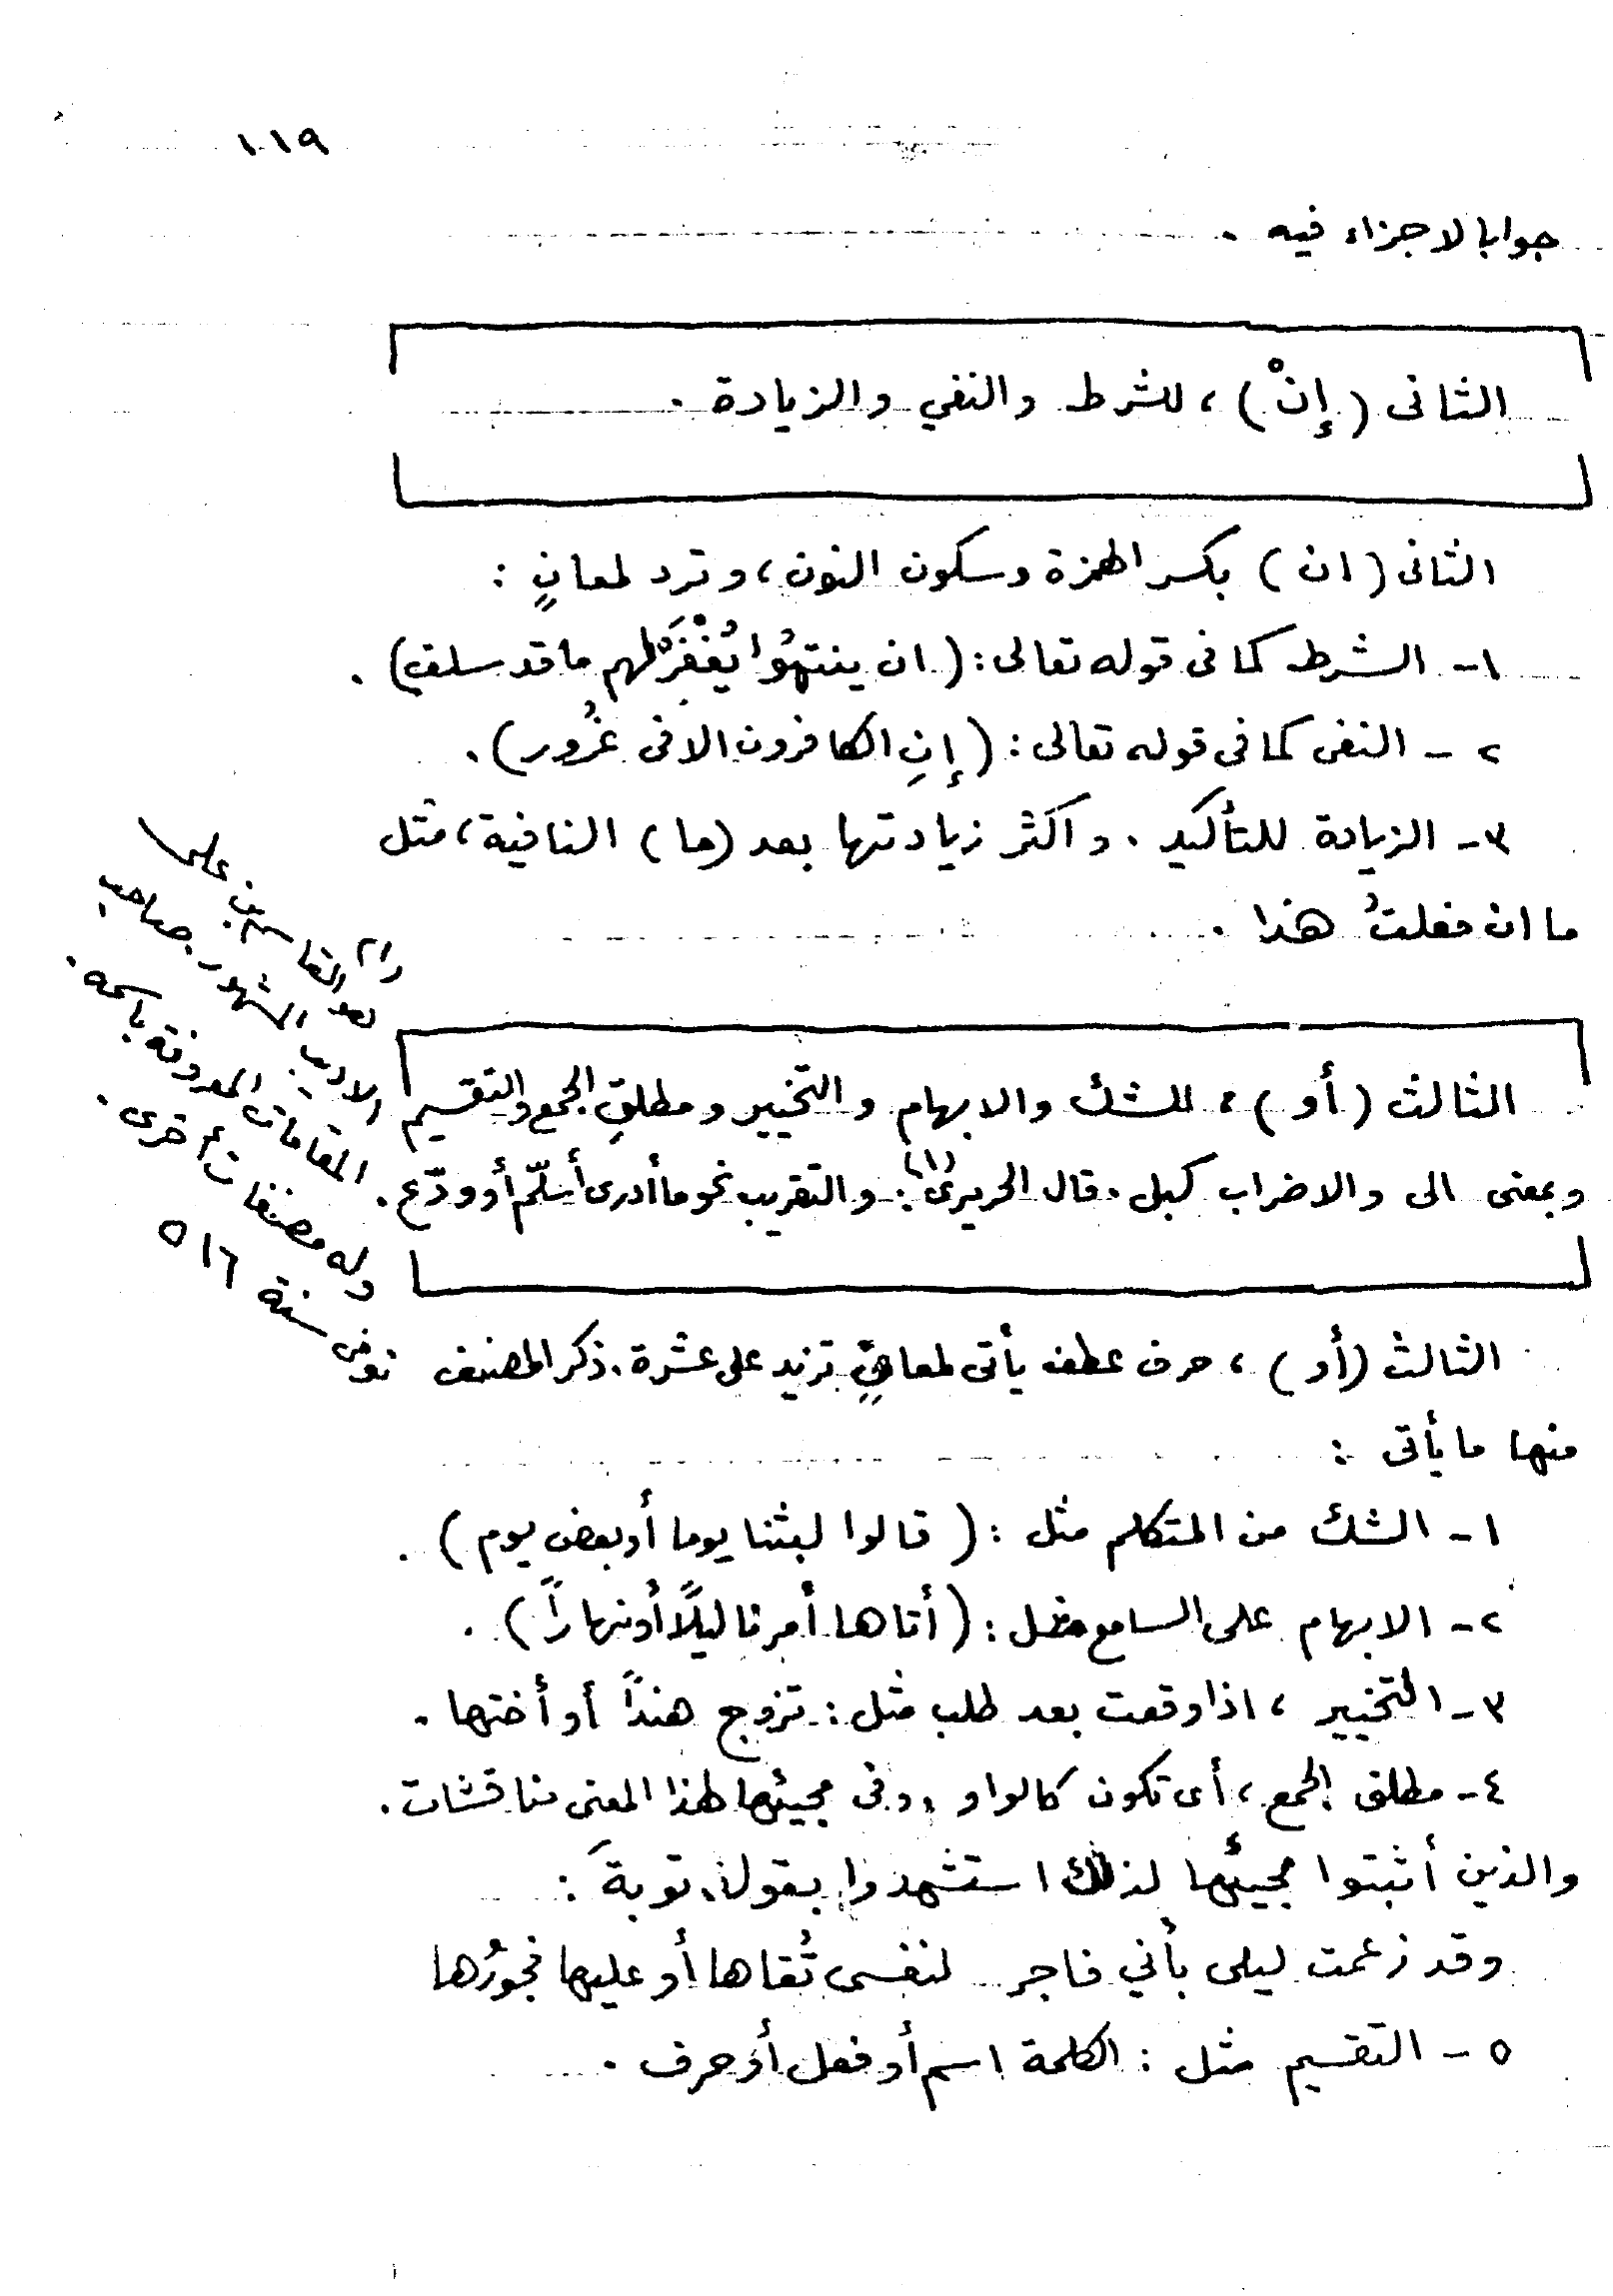 ١١٩
جوابا لا جزاء فيه .
الثانى (إنْ) ، للشرط والنفي والزيادة .
الثانى (ان) بكسر الهمزة وسكون النون ، وترد لمعانٍ :
١- الشرط كما فى قوله تعالى : (ان ينتهُوا يُغْفَرْ لهم ما قد سلف) .
٢- النفى كما فى قوله تعالى : (إنِ الكافرون الا فى غُرُور) .
٣- الزيادة للتأكيد . واكثر زيادتها بعد (ما) النافية ، مثل
ما ان فعلتُ هذا .
الثالث (أو) ، للشك والابهام والتخيير ومطلقِ الجمع والتقسيم
وبمعنى الى والاضراب كبل . قال الحريرى (١) : والتقريب نحو ما أدرى أسلّم أو ودّع .
الثالث (أو) ، حرف عطف يأتى لمعانٍ تزيد على عشرة . ذكر المصنف
منها ما يأتى :
١- الشك من المتكلم مثل : (قالوا لبثنا يوما أو بعض يوم) .
٢- الابهام على السامع مثل : (أتاها أمرنا ليلًا أو نهاراً) .
٣- التخيير ، اذا وقعت بعد طلب مثل : تزوج هنداً أو أختها .
٤- مطلق الجمع ، أى تكون كالواو ، وفى مجيئها لهذا المعنى مناقشات .
والذين أثبتوا مجيئها لذلك استشهدوا بقول توبةَ :
وقد زعمت ليلى بأني فاجر لنفسى تُقاها أو عليها فجورُها
٥- التقسيم مثل : الكلمة اسم أو فعل أو حرف .
(١) القاسم بن على
الاديب الشهور صاحب
المقامات المعروفة باسمه .
وله مصنفات أخرى .
توفى سنة ٥١٦